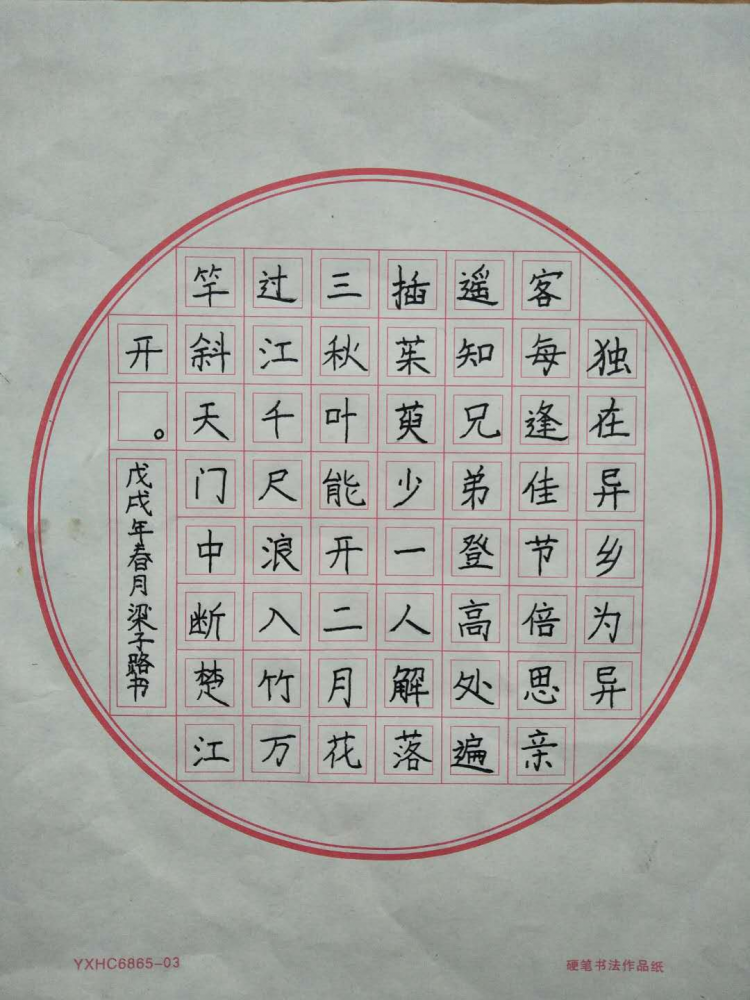 独在异乡为异
客每逢佳节倍思亲
遥知兄弟登高处遍
插茱萸少一人解落
三秋叶能开二月花
过江千尺浪入竹万
竿斜天门中断楚江
开。
戊戌年春月梁子路书
YXHC6865-03
硬笔书法作品纸